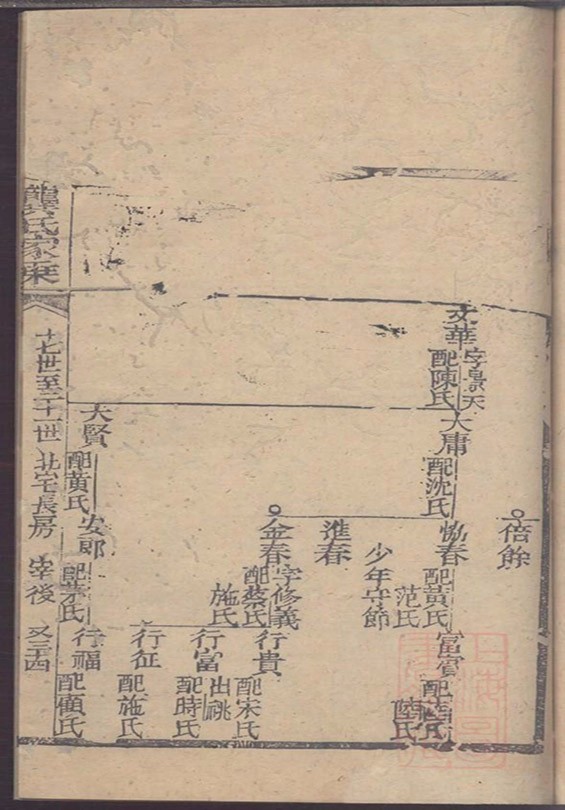 倍餘
文華
字景天
配陳氏
大庸
配沈氏
春
配黃氏
范氏
少年守節
富貴
配
陸氏
進春
金春
字修義
配蔡氏
施氏
行貴
配宋氏
出祧
行富
配時氏
行征
配施氏
大賢
配黃氏
安郎
配茅氏
行福
配顧氏
龔氏家乘
十七世至二十一世
北宅長房
宰後
又二十四